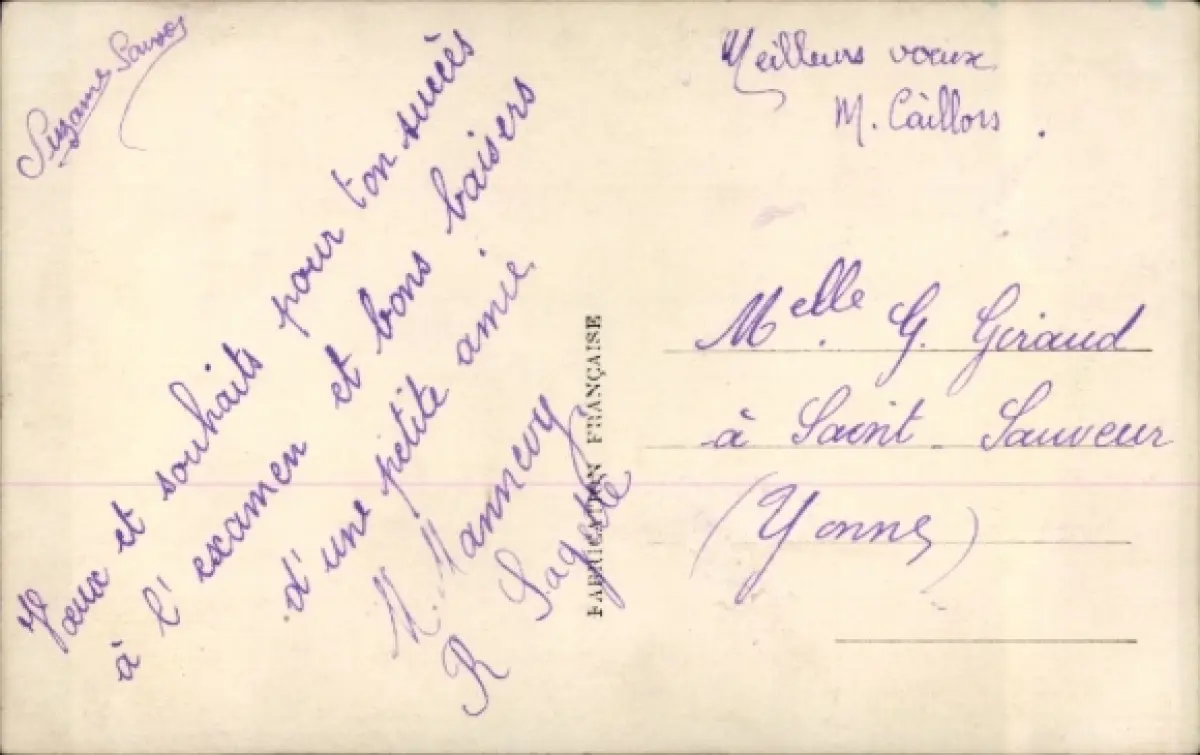 Suzanne
Vœux et souhaits pour ton succès
à l'examen et bons baisers
d'une petite amie.
M. Mannevy
R
Meilleurs vœux
M. Caillors.
FABRICATION FRANÇAISE
Melle. G. Giraud
à Saint-Sauveur
(Yonne)